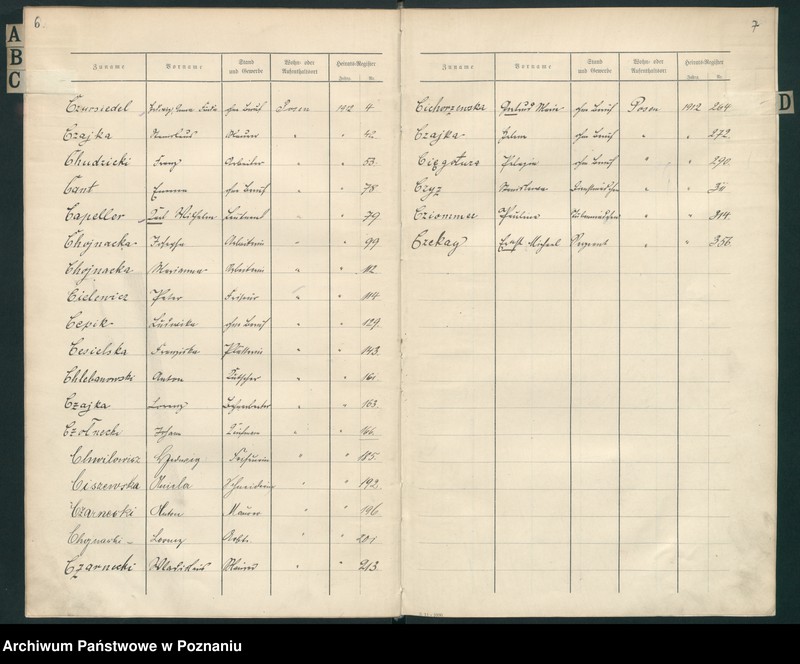 6
A
B
C
Zuname Vorname Stand und Gewerbe Wohn- oder Aufenthaltsort Heirats-Register Jahr. Nr.
Czursiedel ohne Beruf Posen 1912 4
Czajka Maurer " " 42
Chudzicki Franz Arbeiter " " 53
Cant Emma ohne Beruf " " 78
Capeller Wilhelm Leutnant " " 79
Chojnacka Josepha Arbeiterin " " 99
Chojnacka Marianna Arbeiterin " " 112
Cielewicz Peter Friseur " " 114
Cepik Ludwika ohne Beruf " " 129
Cesielska Franziska Plätterin " " 143
Chlebanowski Anton Kutscher " " 161
Czajka Lorenz " " 163
Czołnecki Johann " " 166
Chwilowisz Hedwig " " 185
Ciszewska Aniela Schneiderin " " 192
Czarnecki Anton Maurer " " 196
Chojnacki Lorenz Arbtr. " " 201
Czarnecki Wladislaus Maurer " " 213
7
D
Zuname Vorname Stand und Gewerbe Wohn- oder Aufenthaltsort Heirats-Register Jahr. Nr.
Cichorzewska Maria ohne Beruf Posen 1912 264
Czajka Helena ohne Beruf " " 272
Pelagia ohne Beruf " " 290
Czyz Stanislawa Dienstmädchen " " 311
Cziommer Pauline " " 314
Czekay Ernst Michael Sergeant " " 356
Archiwum Państwowe w Poznaniu